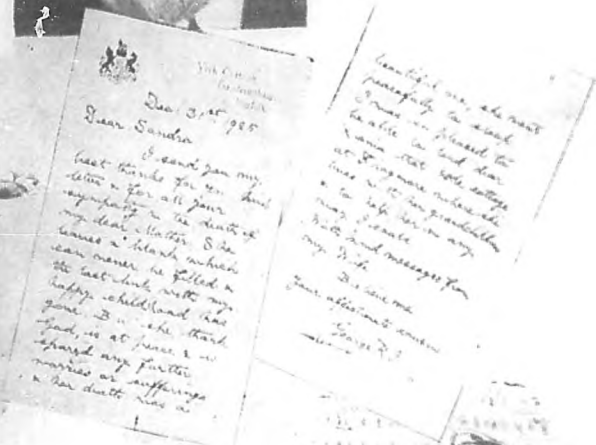 Dec 31st 1925
Dear Sandra
I send you my
best thanks for yr kind
letter & for all your
sympathy in the death of
my dear Mother. She
leaves a blank which
can never be filled &
the last link with my
happy childhood has
gone. But she thank
God, is at peace & is
spared any further
worries or sufferings
& her death was a
beautiful one, she went
peacefully to sleep
I was so pleased to
be able to lend dear
Xenia that cottage
at Frogmore where she
lives with her grandchildren
& to help her in any
way I can.
With kind messages from
my Wife
Believe me
your affectionate cousin
George R.I.